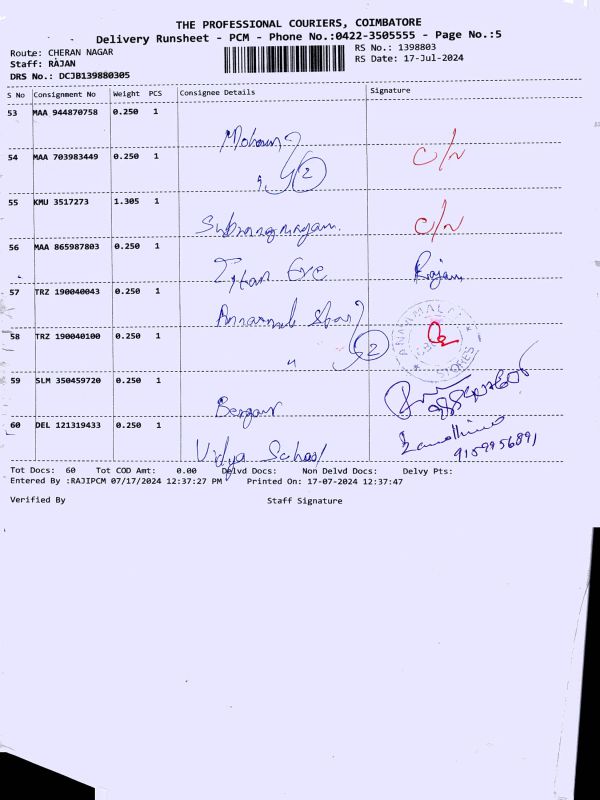 THE PROFESSIONAL COURIERS, COIMBATORE
Delivery Runsheet - PCM - Phone No.:0422-3505555 - Page No.:5
Route: CHERAN NAGAR
RS No.: 1398803
Staff: RAJAN
RS Date: 17-Jul-2024
DRS No.: DCJB139880305
S No Consignment No Weight PCS Consignee Details Signature
53 MAA 944870758 0.250 1
54 MAA 703983449 0.250 1 C/N
2
55 KMU 3517273 1.305 1
C/N
56 MAA 865987803 0.250 1
Titan Eye Rajan
57 TRZ 190040043 0.250 1
58 TRZ 190040100 0.250 1
" 2
STORES
59 SLM 350459720 0.250 1
60 DEL 121319433 0.250 1
Vidya School
9159956891
Tot Docs: 60 Tot COD Amt: 0.00 Delvd Docs: Non Delvd Docs: Delvy Pts:
Entered By :RAJIPCM 07/17/2024 12:37:27 PM Printed On: 17-07-2024 12:37:47
Verified By Staff Signature